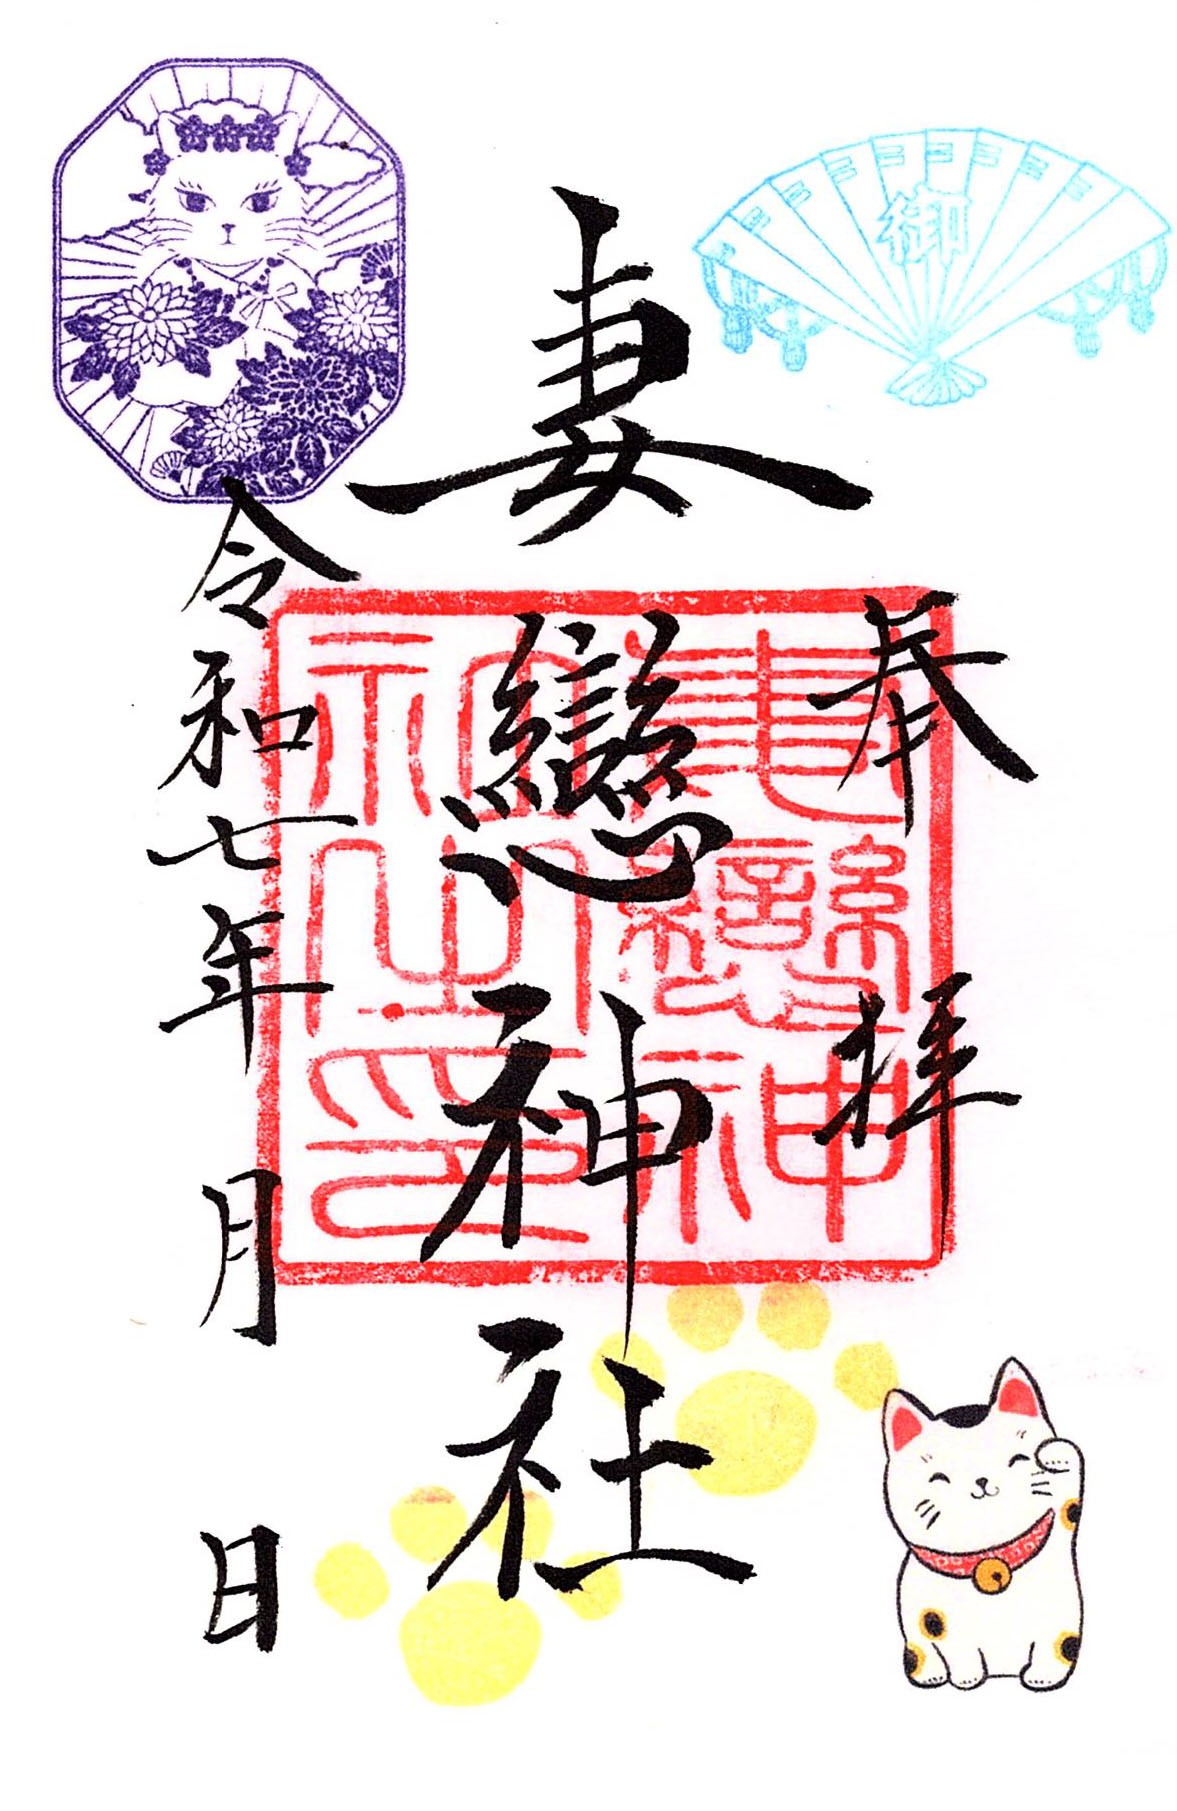 御
奉拝
妻戀神社
妻戀神
社之印
令和七年月日